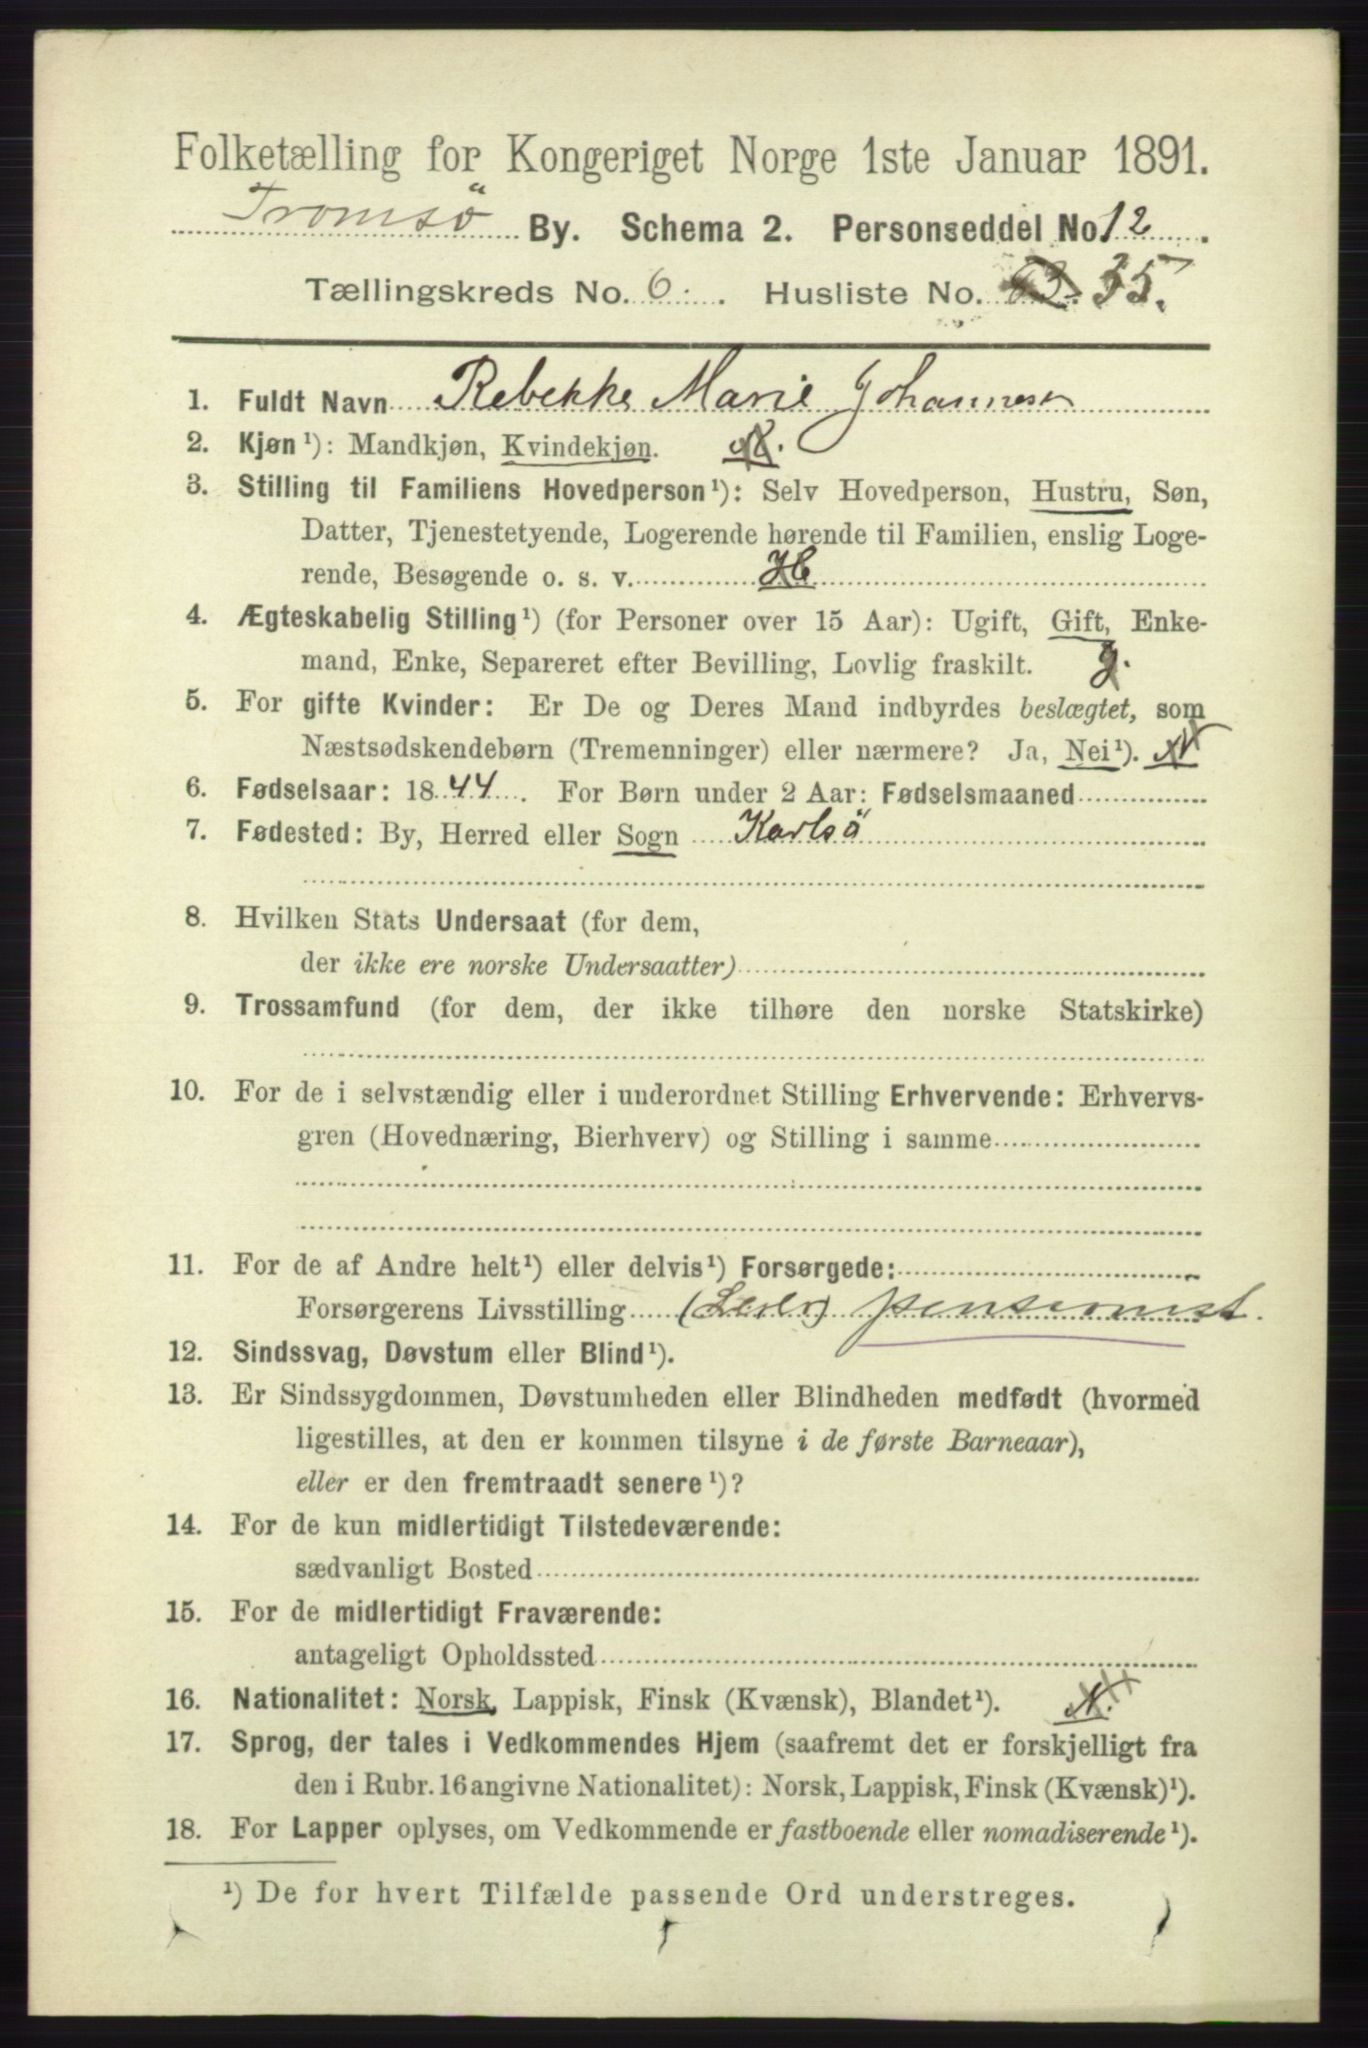 Folketælling for Kongeriget Norge 1ste Januar 1891.
Tromsö By. Schema 2. Personseddel No. 12.
Tællingskreds No. 6. Husliste No. 35.
1. Fuldt Navn Rebekke Marie Johannesen
2. Kjøn¹): Mandkjøn, Kvindekjøn. K.
3. Stilling til Familiens Hovedperson¹): Selv Hovedperson, Hustru, Søn,
Datter, Tjenestetyende, Logerende hørende til Familien, enslig Loge-
rende, Besøgende o. s. v. H
4. Ægteskabelig Stilling¹) (for Personer over 15 Aar): Ugift, Gift, Enke-
mand, Enke, Separeret efter Bevilling, Lovlig fraskilt. g.
5. For gifte Kvinder: Er De og Deres Mand indbyrdes beslægtet, som
Næstsødskendebørn (Tremenninger) eller nærmere? Ja, Nei¹). N
6. Fødselsaar: 1844. For Børn under 2 Aar: Fødselsmaaned
7. Fødested: By, Herred eller Sogn Karlsö
8. Hvilken Stats Undersaat (for dem,
der ikke ere norske Undersaatter)
9. Trossamfund (for dem, der ikke tilhøre den norske Statskirke)
10. For de i selvstændig eller i underordnet Stilling Erhvervende: Erhvervs-
gren (Hovednæring, Bierhverv) og Stilling i samme
11. For de af Andre helt¹) eller delvis¹) Forsørgede:
Forsørgerens Livsstilling pensionist.
12. Sindssvag, Døvstum eller Blind¹).
13. Er Sindssygdommen, Døvstumheden eller Blindheden medfødt (hvormed
ligestilles, at den er kommen tilsyne i de første Barneaar),
eller er den fremtraadt senere¹)?
14. For de kun midlertidigt Tilstedeværende:
sædvanligt Bosted
15. For de midlertidigt Fraværende:
antageligt Opholdssted
16. Nationalitet: Norsk, Lappisk, Finsk (Kvænsk), Blandet¹). N.
17. Sprog, der tales i Vedkommendes Hjem (saafremt det er forskjelligt fra
den i Rubr. 16 angivne Nationalitet): Norsk, Lappisk, Finsk (Kvænsk)¹).
18. For Lapper oplyses, om Vedkommende er fastboende eller nomadiserende¹).
¹) De for hvert Tilfælde passende Ord understreges.